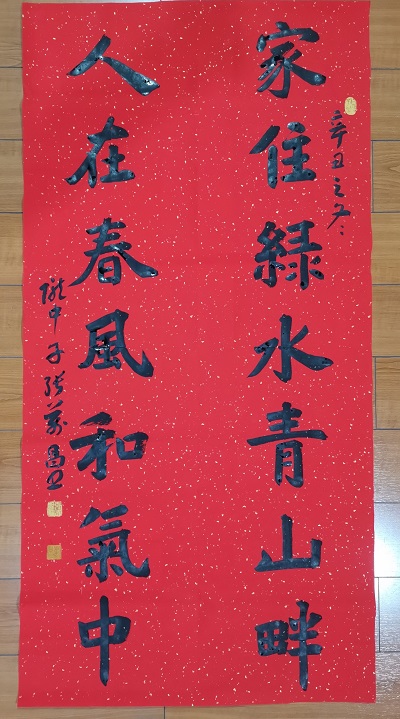 辛丑之冬
家住綠水青山畔
人在春風和氣中
隴中子張萬昌書